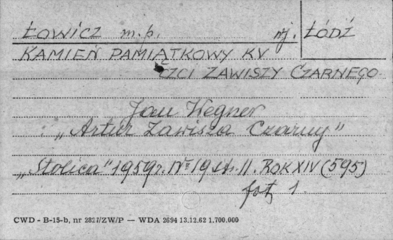 ŁOWICZ m.p. wj. ŁÓDŹ
KAMIEŃ PAMIĄTKOWY KV
CZCI ZAWISZY CZARNEGO
Jan Wegner
"Artur Zawisza Czarny"
"Stolica" 1959r. Nr 19 str. 11. ROK XIV (595)
fot 1.
CWD - B-15-b, nr 2827/ZW/P — WDA 2694 13.12.62 1.700.000